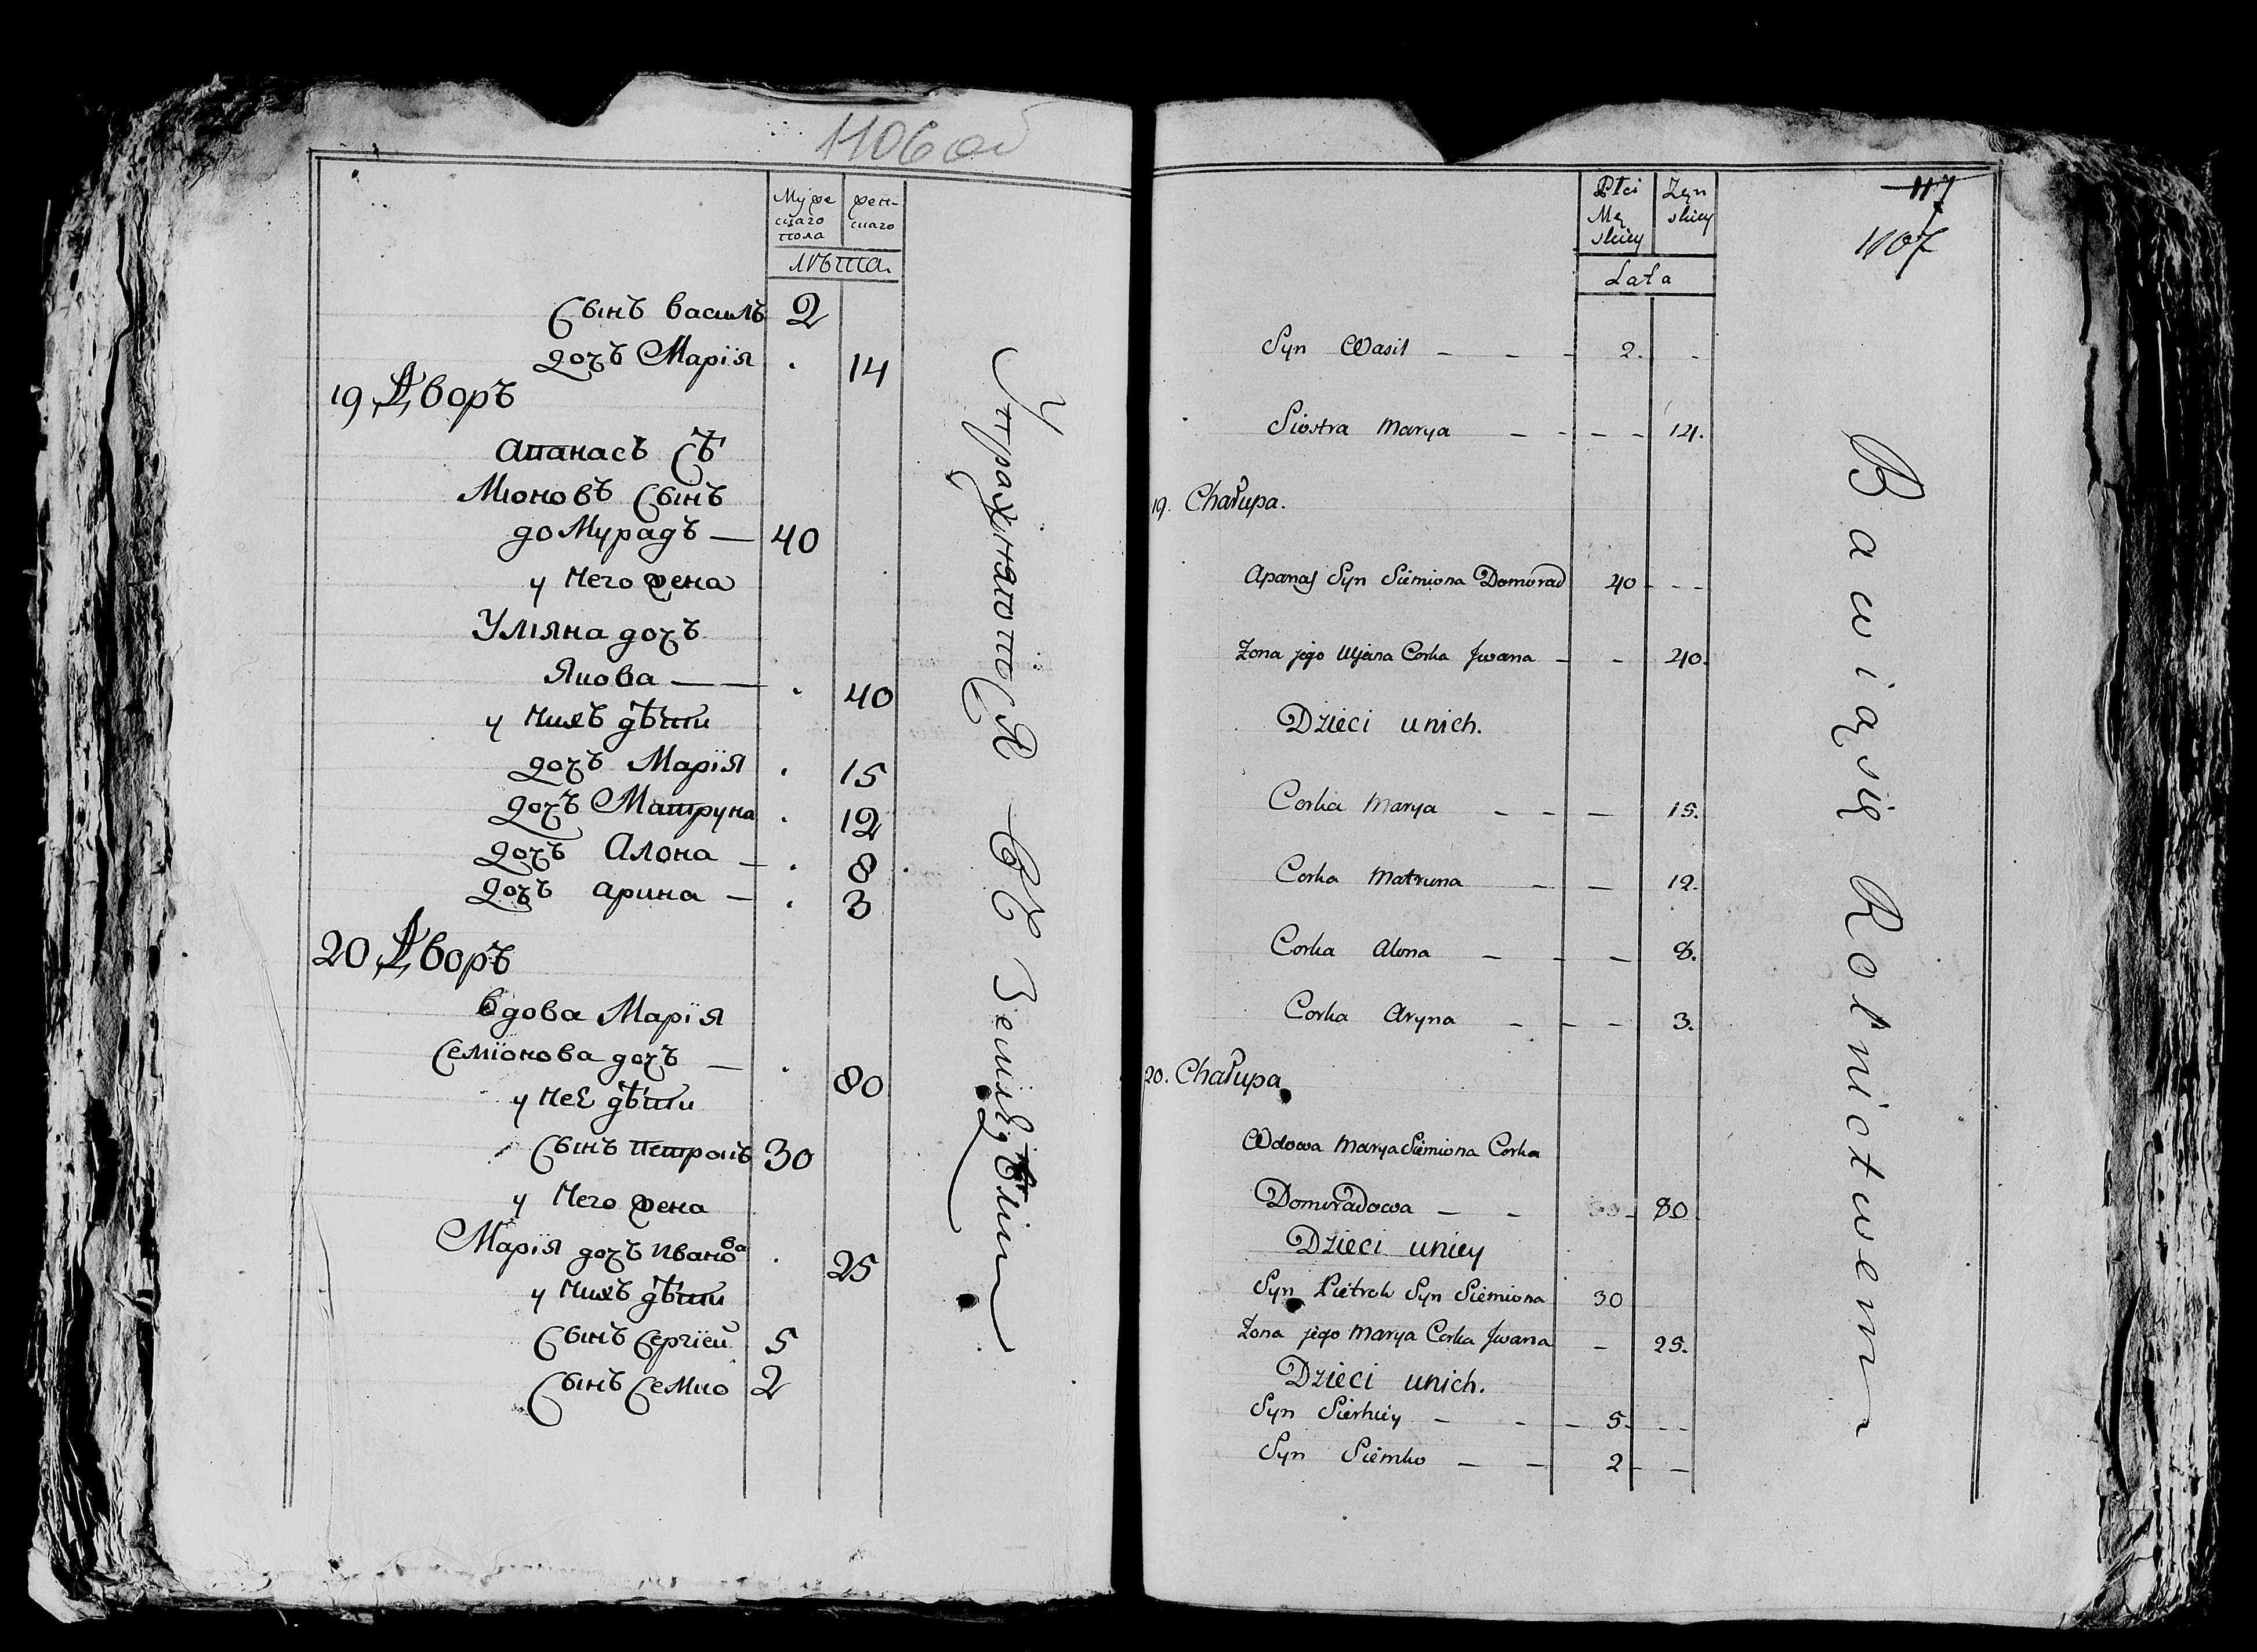 1106 об
Муже
скаго
пола
жен-
скаго
лѣта.
Сынъ василь 2
дочь Марія . 14
19 Дворъ
Апанасъ Сѣ
Міоновъ Сынъ
доМурадъ — 40
у Него жена
Уліяна дочь
Якова — — . 40
у Нихъ дѣти
дочь Марія . 15
дочь Матруна . 12
дочь Алона — . 8
дочь арина — . 3
20 Дворъ
вдова Марія
Семіонова дочь — . 80
у Неё дѣти
Сынъ петрокъ 30
у Него жена
Марія дочь Иванова . 25
у Нихъ дѣти
Сынъ Сергіей 5
Сынъ Семко 2
Упражняютьса въ Земледѣліи
Płci
Mę
skiey
Żyn
skiey
Lata
117
1107
Syn Wasil — — — 2. -
Siostra Marya — — — — 14.
19. Chałupa.
Apanas Syn Siemiona Domorad 40 - - -
Żona jego Uljana Corka Jwana — — 40.
Dzieci unich.
Corka Marya — — — 15.
Corka Matruna — — 12.
Corka Alona — — — 8.
Corka Aryna — — — 3.
20. Chałupa
Wdowa Marya Siemiona Corka
Domoradowa — — 80.
Dzieci uniey
Syn Pietrok Syn Siemiona 30
Żona jego Marya Corka Jwana — 25.
Dzieci unich.
Syn Sierhiey — — — 5. - -
Syn Siemko — — 2 — —
Bawią się Rolnictwem